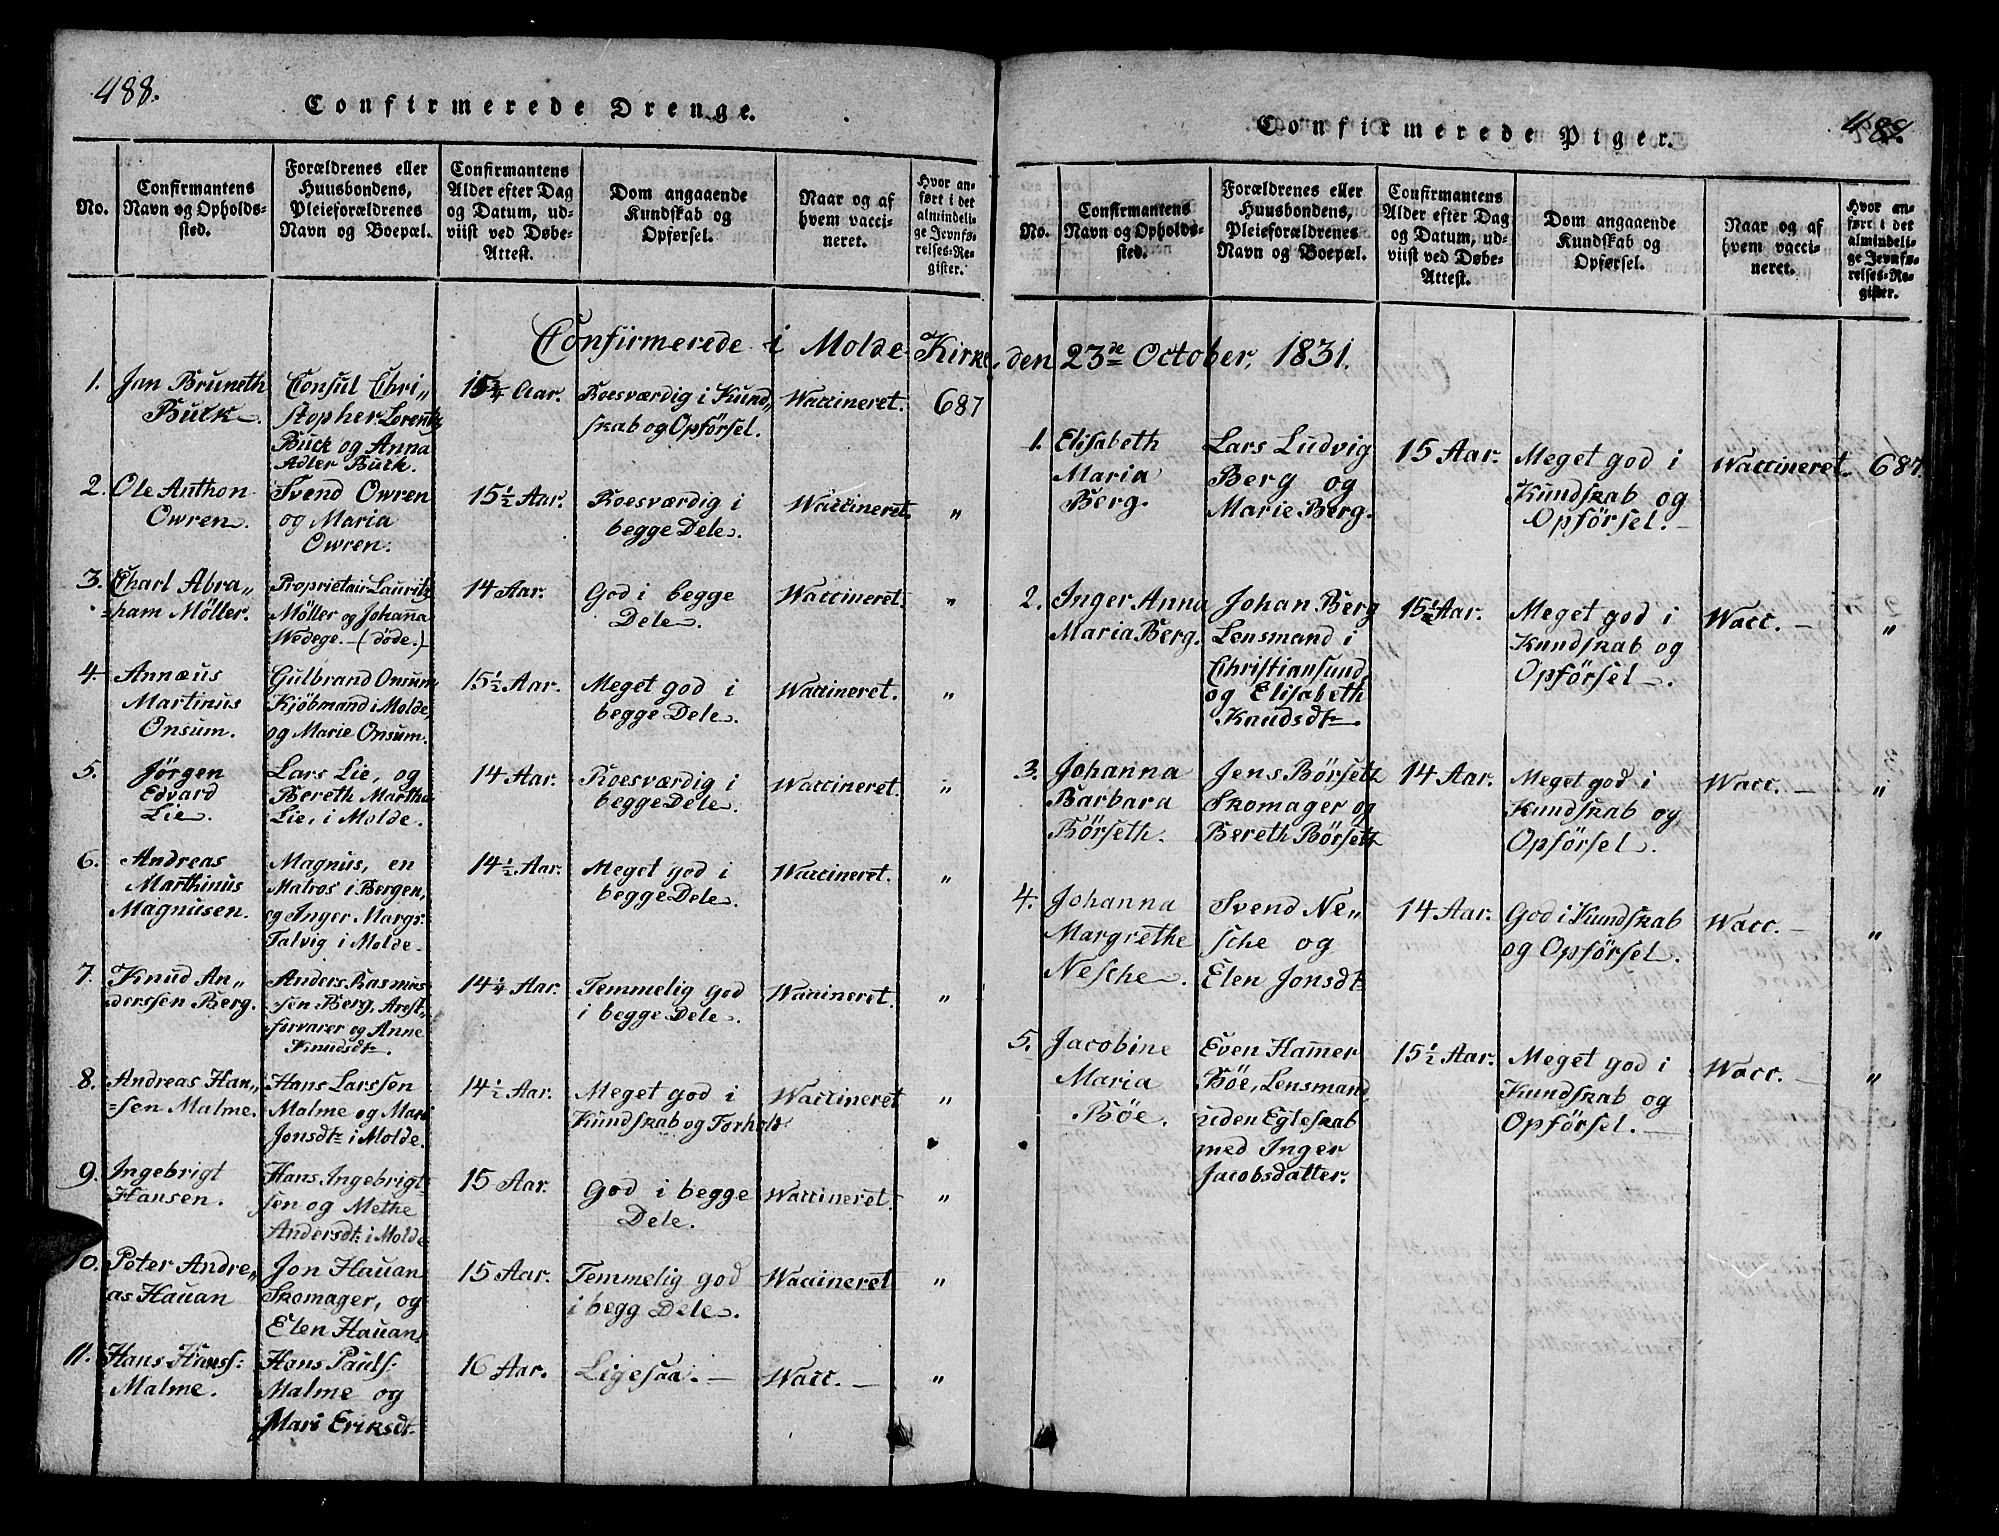 488.
Confirmerede Drenge.
No.
Confirmantens
Navn og Opholds-
sted.
Forældrenes eller
Huusbondens,
Pleieforældrenes
Navn og Boepæl.
Confirmantens
Alder efter Dag
og Datum, ud-
viist ved Døbe-
Attest.
Dom angaaende
Kundskab og
Opførsel.
Naar og af
hvem vacci-
neret.
Hvor an-
ført i det
almindeli-
ge Jevnfø-
relses-Re-
gister.
Confirmerede i Molde Kirke, den 23de October, 1831.
1.
Jan Bruneth
Buck.
Consul Chri„
stopher Lorentz
Buck og Anna
Adler Buck.
15¾ Aar.
Roesværdig i Kund„
skab og Opförsel.
Waccineret.
687
2.
Ole Anthon
Owren.
Svend Owren
og Maria
Owren.
15½ Aar.
Roesværdig i
begge Dele.
Waccineret.
„
3.
Charl Abra„
ham Möller.
Proprietair Lauritz
Möller og Johanna
Wedege. - (döde.)
14 Aar.
God i begge
Dele.
Waccineret.
„
4.
Annæus
Martinus
Onsum.
Gulbrand Onsum
Kjöbmand i Molde,
og Marie Onsum.
15½ Aar.
Meget god i
begge Dele.
Waccineret.
„
5.
Jörgen
Edvard
Lie.
Lars Lie, og
Bereth Martha
Lie, i Molde.
14 Aar.
Roesværdig i
begge Dele.
Waccineret.
„
6.
Andreas
Marthinus
Magnusen.
Magnus, en
Matros i Bergen,
og Inger Margs:
Talvig i Molde.
14½ Aar.
Meget god i
begge Dele.
Waccineret.
„
7.
Knud An„
derssen Berg.
Anders Rasmus
sen Berg, Arest„
forvarer og Anne
Knudsdt:
14¼ Aar.
Temmelig god
i begge Dele.
Waccineret.
„
8.
Andreas Han„
sen Malme.
Hans Larssen
Malme og Mari
Jonsdt: i Molde.
14½ Aar.
Meget god i
Kundskab og Forhold
Waccineret
„
9.
Ingebrigt
Hansen.
Hans Ingebrigt
sen og Methe
Andersdt: i Molde
15 Aar.
God i begge
Dele.
Waccineret.
„
10.
Peter Andre„
as Hauan
Jon Hauan
Skomager, og
Elen Hauan.
15 Aar.
Temmelig god
i begg Dele.
Waccineret
„
11.
Hans Hanss:
Malme.
Hans Pauls:
Malme og
Mari Eriksdt.
16 Aar.
Ligesaa. -
Wacc. -
„
489.
Confirmerede Piger.
No.
Confirmantens
Navn og Opholds-
sted.
Forældrenes eller
Huusbondens,
Pleieforældrenes
Navn og Boepæl.
Confirmantens
Alder efter Dag
og Datum, ud-
viist ved Døbe-
Attest.
Dom angaaende
Kundskab og
Opførsel.
Naar og af
hvem vacci-
neret.
Hvor an-
ført i det
almindeli-
ge Jevnfø-
relses-Re-
gister.
1.
Elisabeth
Maria
Berg.
Lars Ludvig
Berg og
Marie Berg.
15 Aar.
Meget god i
Kundskab og
Opförsel. -
Waccineret.
687.
2.
Inger Anna
Maria Berg.
Johan Berg
Lensmand i
Christiansund,
og Elisabeth
Knudsdt:
15½ Aar.
Meget god i
Kundskab og
Opförsel.
Wacc. -
„
3.
Johanna
Barbara
Börseth.
Jens Börseth
Skomager og
Bereth Börseth
14 Aar.
Meget god i
Kundskab og
Opförsel.
Wacc. -
„
4.
Johanna
Margrethe
Nesche.
Svend Ne„
sche og
Elen Jonsdt:
14 Aar.
God i Kundskab
og Opförsel.
Wacc. -
„
5.
Jacobine
Maria
Böe.
Even Hamer
Böe, Lensmand,
uden Egteskab
med Inger
Jacobsdatter.
15½ Aar.
Meget god i
Kundskab og
Opförsel. -
Wacc. -
„